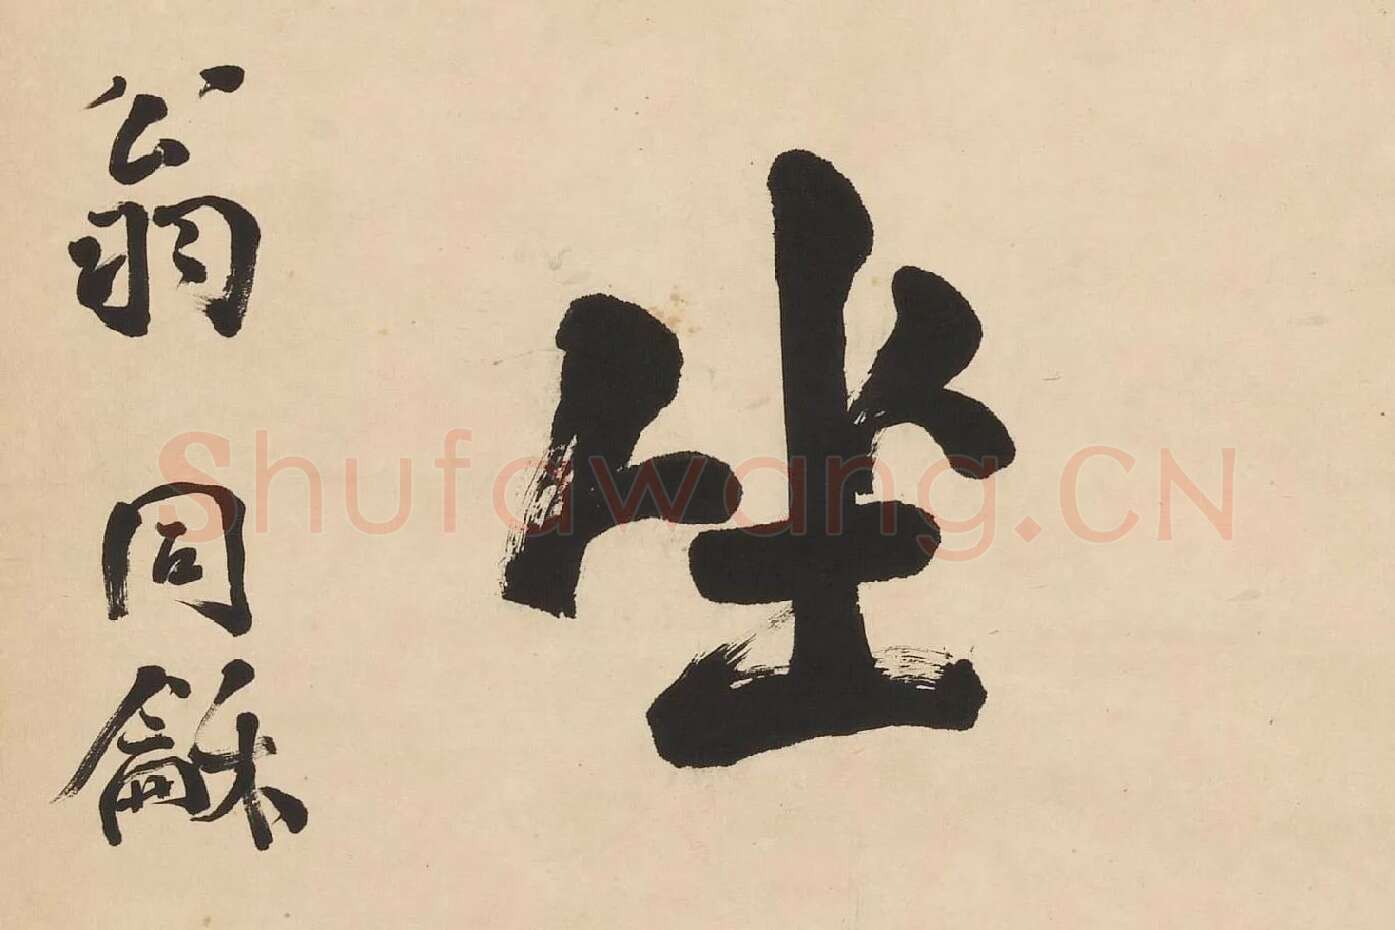 坐
翁
同
龢
Shufawang.CN